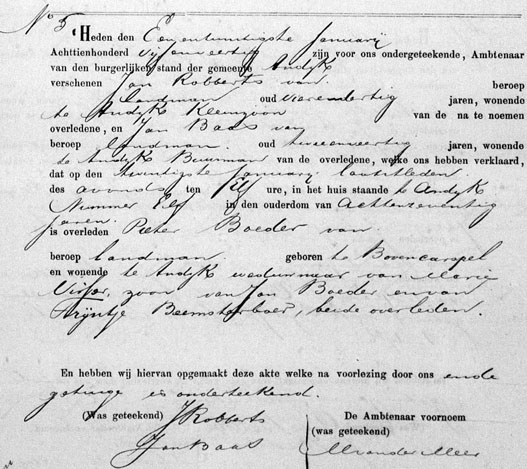 No 5
Heden den Eenentwintigste Januarij
Achttienhonderd vijfenveertig zijn voor ons ondergeteekende, Ambtenaar
van den burgerlijken stand der gemeente Andyk
verschenen Jan Robberts van beroep
Landman oud vierendertig jaren, wonende
te Andyk Kleinzoon van de na te noemen
overledene, en Jan Baas van
beroep landman oud tweeenveertig jaren, wonende
te Andyk Buurman van de overledene, welke ons hebben verklaard,
dat op den twintigste Januarij laatstleden
des avonds ten Elf ure, in het huis staande te Andyk
Nummer Elf in den ouderdom van achtenzeventig
jaren
is overleden Pieter Boeder van
beroep landman geboren te Bovencarspel
en wonende te Andyk weduwnaar van Marie
Visser, zoon van Jan Boeder en van
Trijntje Beemsterboer, beide overleden.
En hebben wij hiervan opgemaakt deze akte welke na voorlezing door ons ende
getuige is onderteekend.
(Was geteekend) J Robberts De Ambtenaar voornoem
Jan Baas (was geteekend)
M vander Meer